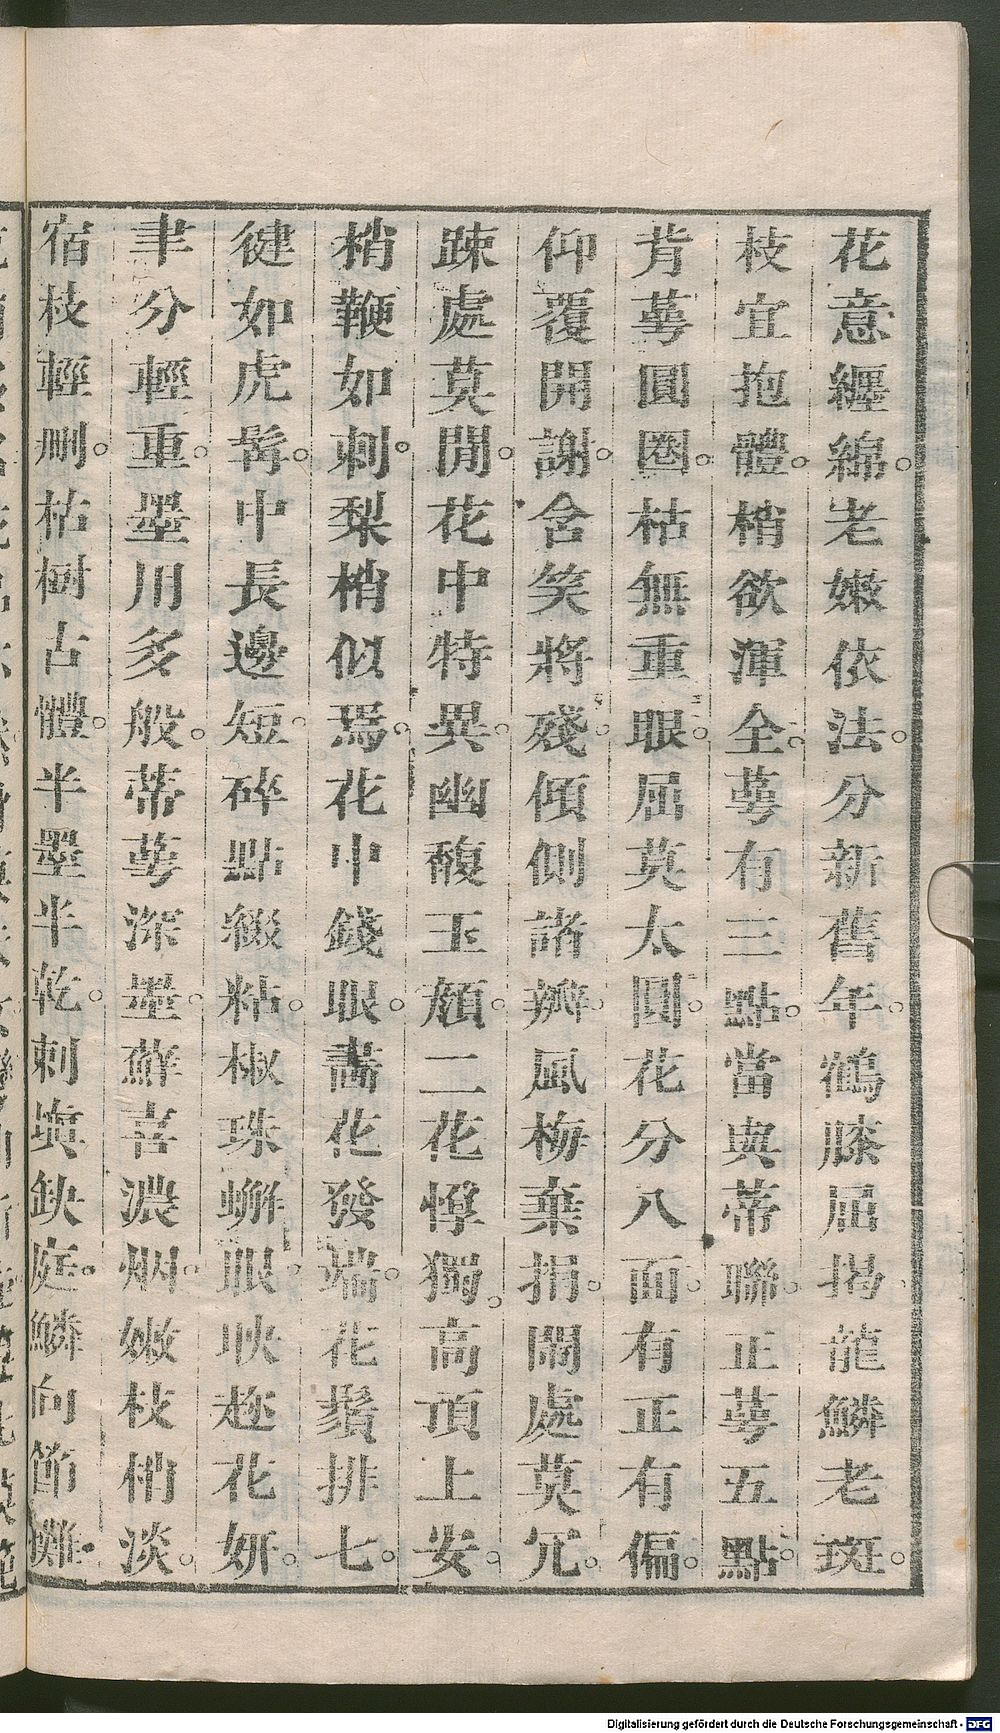 花意纏綿。老嫩依法。分新舊年。鶴膝屈揭。龍鱗老斑。
枝宜抱體。梢欲渾全。萼有三點。當與蒂聯。正萼五點
背萼圓圈。枯無重眼。屈莫太圓。花分八面。有正有偏。
仰覆開謝。含笑將殘。傾側諸瓣。風梅棄捐。閙處莫冗。
踈處莫閒。花中特異。幽馥玉顏。二花惸獨。高頂上安。
梢鞭如刺。梨梢似焉。花中錢眼。畵花發端。花鬚排七。
健如虎髯。中長邊短。碎點綴粘。椒珠蠏眼。映趂花妍。
聿分輕重。墨用多般。蒂萼深墨。蘚喜濃烟。嫩枝梢淡。
宿枝輕刪。枯樹古體。半墨半乾。刺填缺庭。鱗向節攤。
Digitalisierung gefördert durch die Deutsche Forschungsgemeinschaft - DFG